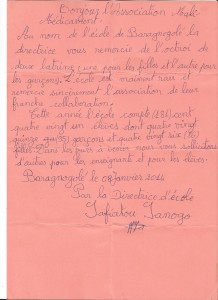 Bonjour l'Association
Médicament.
Au nom de l'école de Baragnogolé la
directrice vous remercie de l'octroi de
deux latrines ; une pour les filles et l'autre pour
les garçons. L'école est vraiment ravi et
remercie sincèrement l'association de leur
franche collaboration.
Cette année l'école compte (181) cent
quatre vingt un élèves dont quatre vingt
quinze garçons et quatre vingt six (86)
filles. Dans les jours à venir nous vous sollicitons
d'autres pour les enseignants et pour les élèves.
Baragnogolé le 08 Janvier
Par la Directrice d'école
Safiatou Sanogo